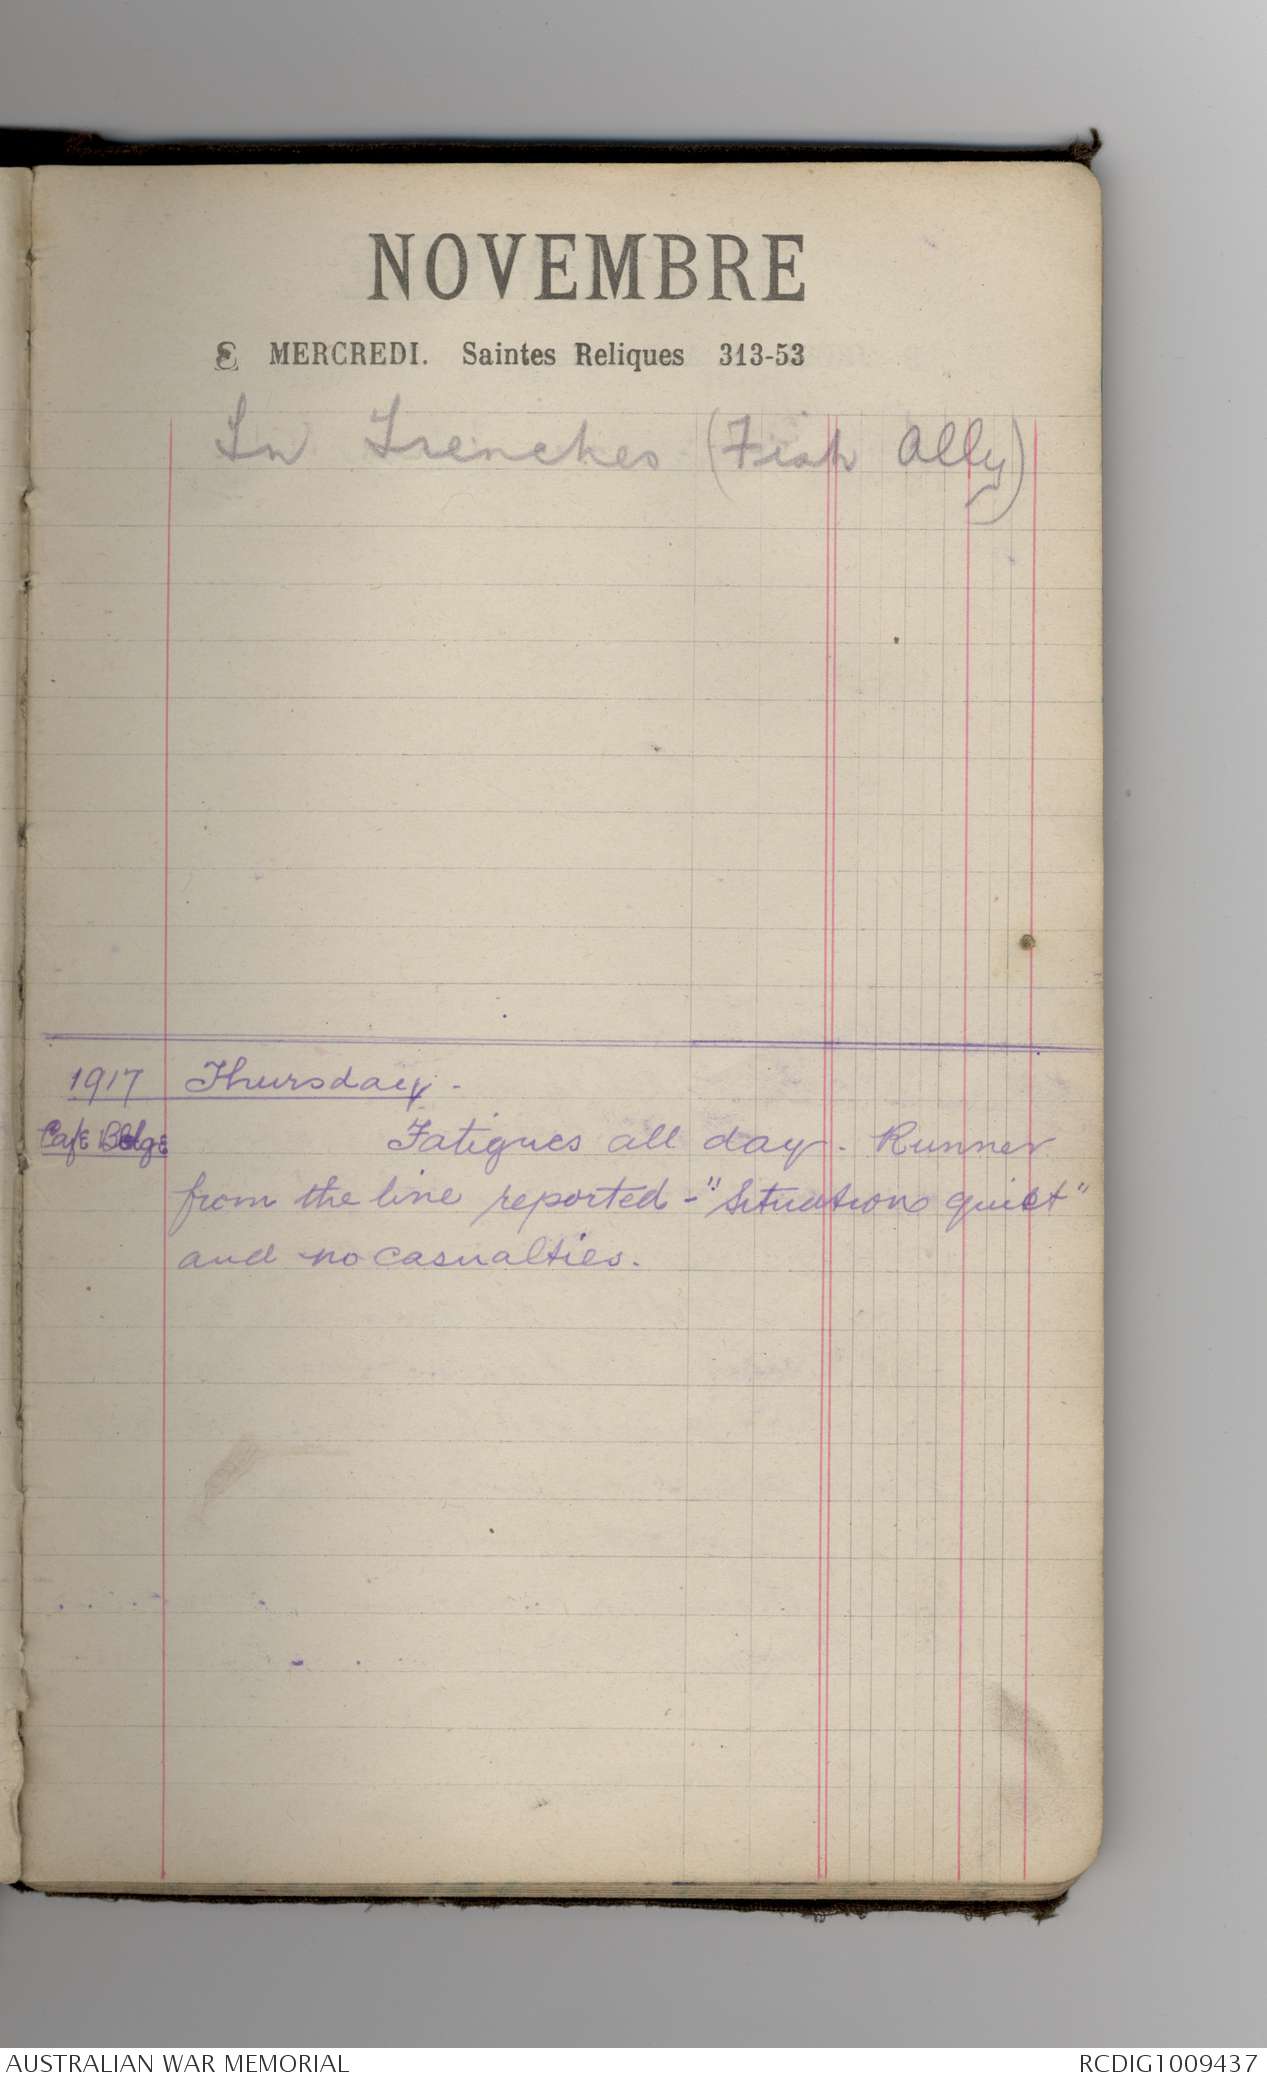 NOVEMBRE
8 MERCREDI. Saintes Reliques 313-53
In Trenches (Fish Ally)
1917 Thursday -
Café Belge Fatigues all day. Runner
from the line reported - "Situation quiet"
and no casualties.
AUSTRALIAN WAR MEMORIAL
RCDIG1009437